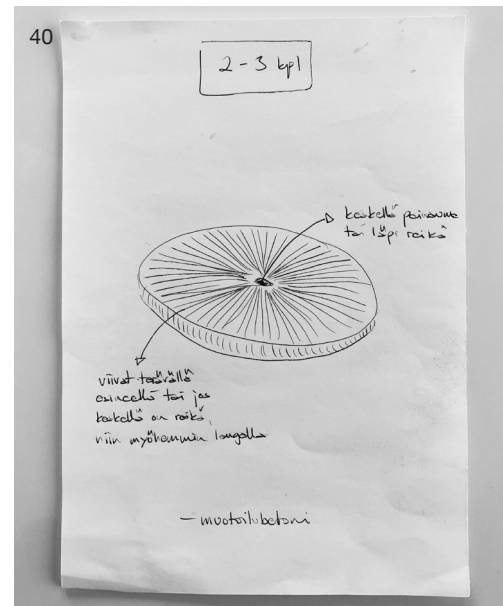 40
2 - 3 kpl
keskellä painauma
tai läpi reikä
viivat terävällä
esineellä tai jos
keskellä on reikä,
niin myöhemmin langalla
- muotoilubetoni